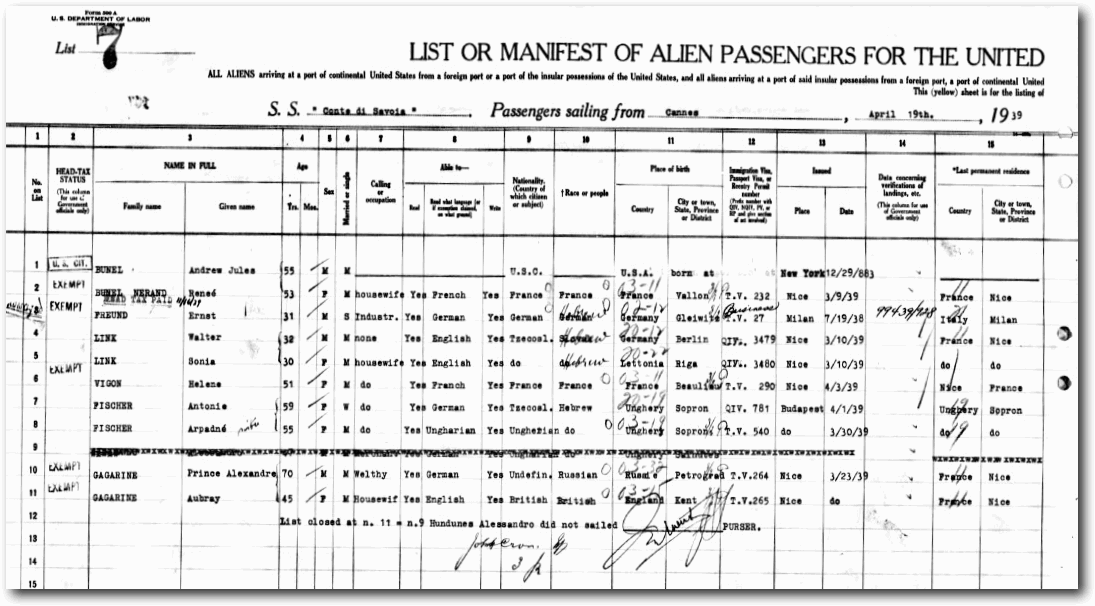 Form 500 A
U. S. DEPARTMENT OF LABOR
IMMIGRATION SERVICE
List 7
LIST OR MANIFEST OF ALIEN PASSENGERS FOR THE UNITED
ALL ALIENS arriving at a port of continental United States from a foreign port or a port of the insular possessions of the United States, and all aliens arriving at a port of said insular possessions from a foreign port, a port of continental United
This (yellow) sheet is for the listing of
S. S. " Conte di Savoia " , Passengers sailing from Cannes , April 19th. , 1939
1 2 3 4 5 6 7 8 9 10 11 12 13 14 15
No. on List
HEAD-TAX STATUS (This column for use of Government officials only)
NAME IN FULL Family name Given name
Age Yrs. Mos.
Sex
Married or single
Calling or occupation
Able to— Read Read what language (or if exemption claimed, on what ground) Write
Nationality. (Country of which citizen or subject)
†Race or people
Place of birth Country City or town, State, Province or District
Immigration Visa, Passport Visa, or Reentry Permit number (Prefix number with QIV, NQIV, PV, or RP and give section of act involved)
Issued Place Date
Data concerning verifications of landings, etc. (This column for use of Government officials only)
*Last permanent residence Country City or town, State, Province or District
1 U. S. CIT. BUNEL Andrew Jules 55 M M U.S.C. U.S.A. born at New York 12/29/883
2 EXEMPT BUNEL NERAND Reneé 53 F M housewife Yes French Yes France France France Vallon T.V. 232 Nice 3/9/39 France Nice
HEAD TAX PAID
3 EXEMPT FREUND Ernst 31 M S Industr. Yes German Yes German German Hebrew Germany Gleiwitz T.V. 27 Business Milan 7/19/38 Italy Milan
4 LINK Walter 32 M M none Yes English Yes Tzecosl. Hebrew Germany Berlin QIV. 3479 Nice 3/10/39 France Nice
5 EXEMPT LINK Sonia 30 F M housewife Yes English Yes do do Hebrew Lettonia Riga QIV. 3480 Nice 3/10/39 do do
6 VIGON Helene 51 F M do Yes Franch Yes France France France Beaulieu T.V. 290 Nice 4/3/39 Nice France
7 FISCHER Antonie 59 F W do Yes German Yes Tzecosl. Hebrew Unghery Sopron QIV. 781 Budapest 4/1/39 Unghery Sopron
8 FISCHER Arpadné 55 F M do Yes Ungharian Yes Ungherian do Unghery Sopron T.V. 540 do 3/30/39 do do
9
10 EXEMPT GAGARINE Prince Alexandre 70 M M Welthy Yes German Yes Undefin. Russian Russie Petrograd T.V.264 Nice 3/23/39 France Nice
11 EXEMPT GAGARINE Aubray 45 F M Housewif Yes English Yes British British England Kent T.V.265 Nice do France Nice
12 List closed at n. 11 = n.9 Hundunes Alessandro did not sailed PURSER.
13
14
15